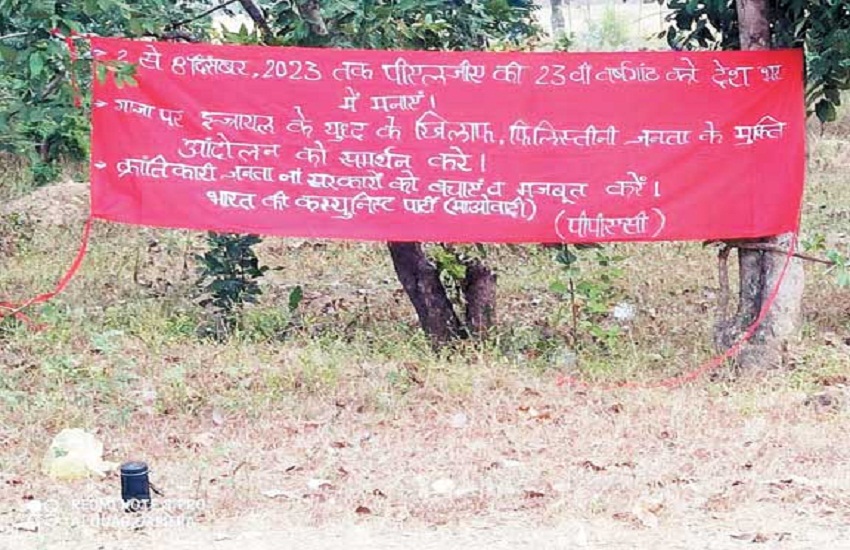 → 2 से 8 दिसंबर, 2023 तक पीएलजीए की 23 वी वर्षगांठ को देश भर
में मनाएं।
→ गाजा पर इजरायल के युध्द के खिलाफ, फिलिस्तीनी जनता के मुक्ति
आंदोलन को समर्थन करे।
→ क्रांतिकारी जनता ना सरकारों को बचाएं व मजबूत करें।
भारत की कम्युनिस्ट पार्टी (माओवादी)
(पीपीएससी)
REDMI NOTE 5 PRO
AI DUAL CAMERA